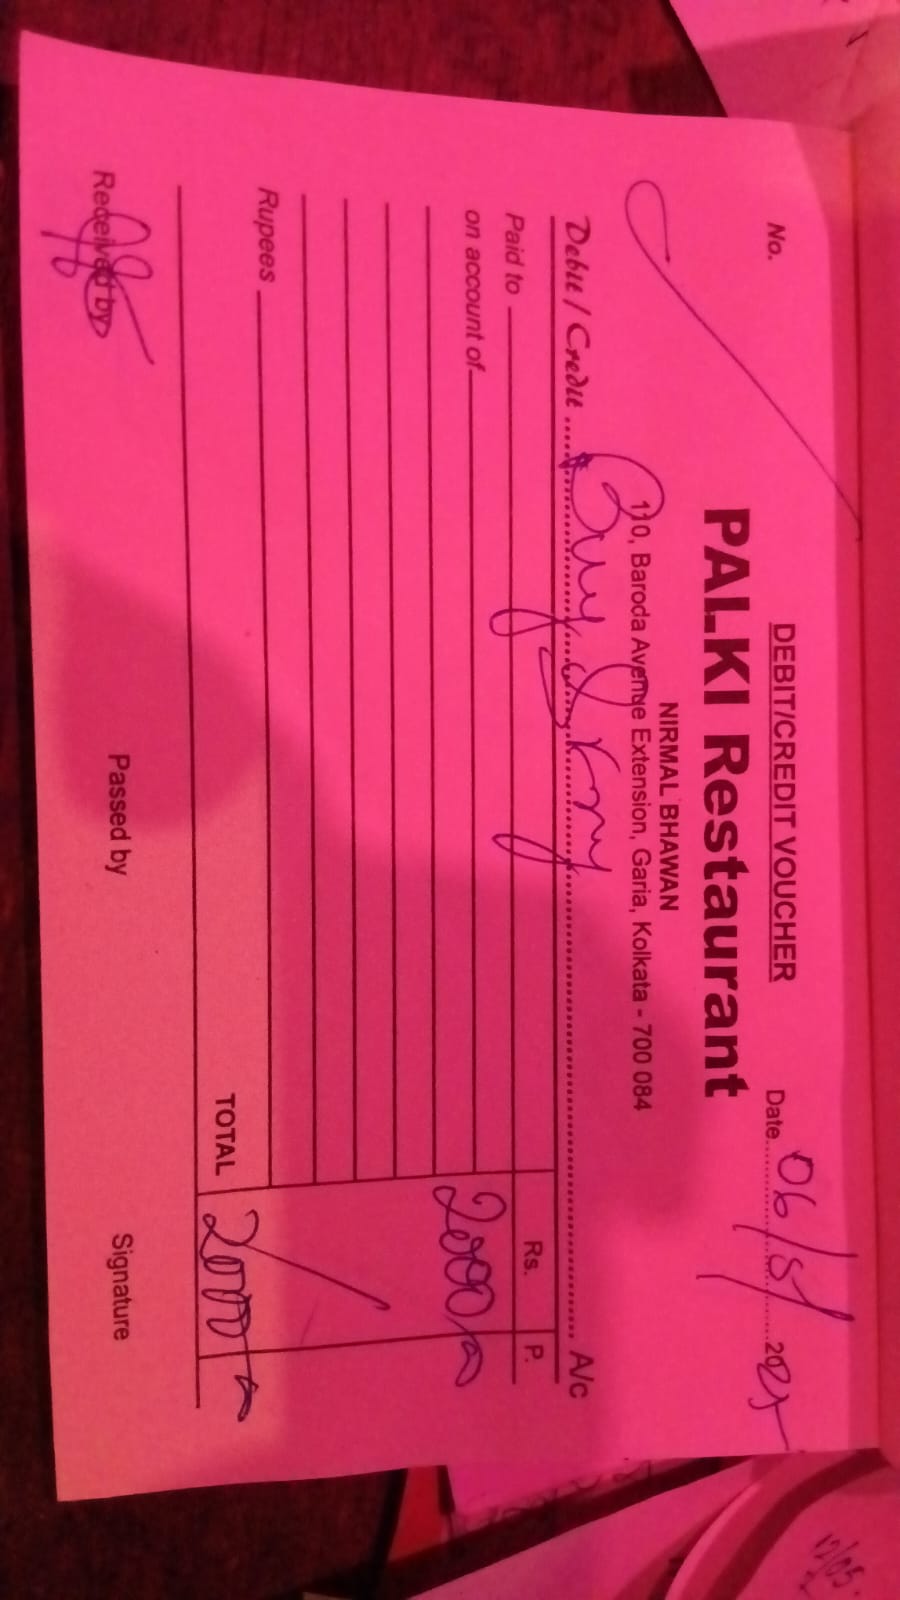 DEBIT/CREDIT VOUCHER
No.
Date 06/5/ 2025
PALKI Restaurant
NIRMAL BHAWAN
110, Baroda Avenue Extension, Garia, Kolkata - 700 084
Debit / Credit A/c
Paid to Rs. P.
on account of 2000
Rupees
TOTAL 2000
Received by Passed by Signature
12/05